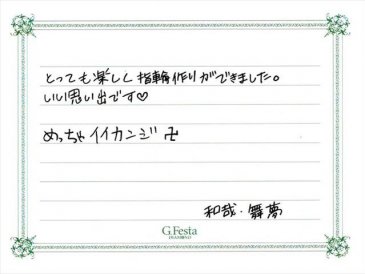 とっても楽しく指輪作りができました。
いい思い出です♡
めっちゃイイカンジ卍
和哉・舞夢
G.Festa
DIAMOND